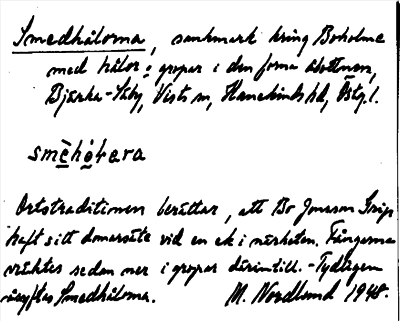 Smedhålorna, sankmark kring Boholme
med hålor o. gropar i den forna slottmn,
Bjärka-Säby, Vists sn, Hanekinds hd, Östg.l.
smḕhọ́ɫɐra
Ortstraditionen berättar, att Bo Jonsson Grip
haft sitt domarsäte vid en ek i närheten. Fångarna
vräktes sedan ner i gropar därintill. - Tydligen
åsyftas Smedhålorna. M. Nordlund 1948.